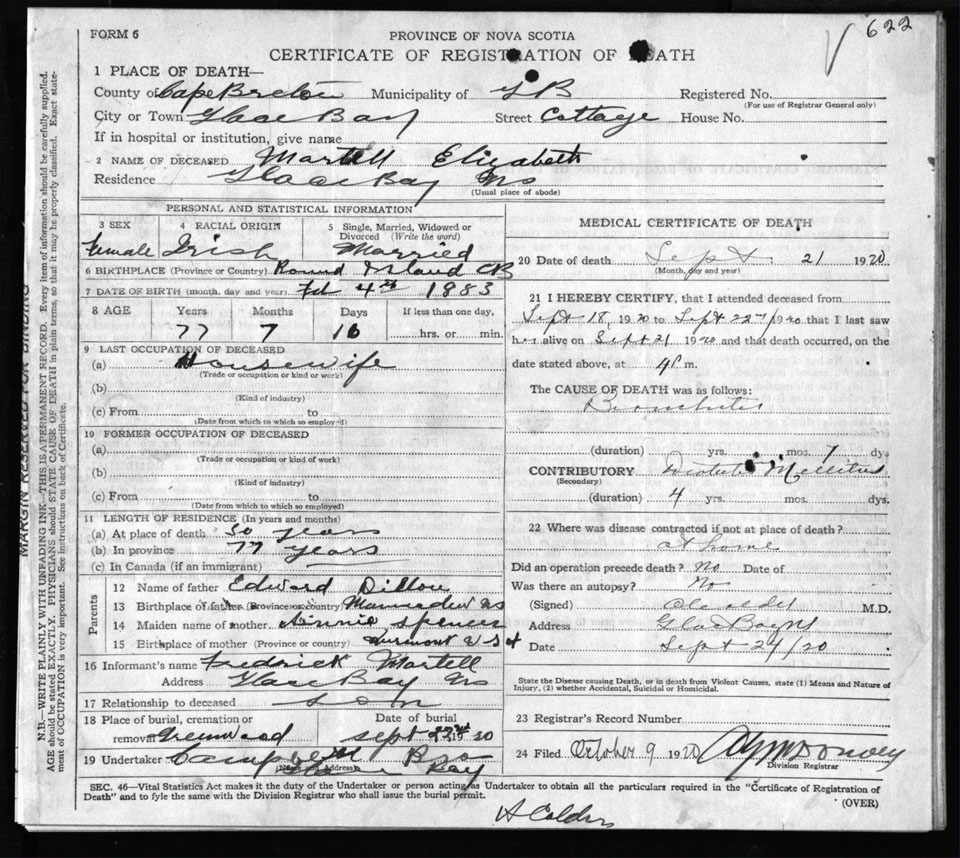 622
FORM 6
PROVINCE OF NOVA SCOTIA
CERTIFICATE OF REGISTRATION OF DEATH
1 PLACE OF DEATH—
County of Cape Breton Municipality of GB Registered No.
(For use of Registrar General only)
City or Town Glace Bay Street Cottage House No.
If in hospital or institution, give name
2 NAME OF DECEASED Martell Elizabeth
Residence Glace Bay NS
(Usual place of abode)
PERSONAL AND STATISTICAL INFORMATION
3 SEX 4 RACIAL ORIGIN 5 Single, Married, Widowed or Divorced (Write the word)
Female Irish Married
6 BIRTHPLACE (Province or Country) Round Island CB
7 DATE OF BIRTH (month, day and year) Feb 4th 1883
8 AGE Years Months Days If less than one day,
77 7 16 hrs. or min.
9 LAST OCCUPATION OF DECEASED
(a) Housewife
(Trade or occupation or kind or work)
(b)
(Kind of industry)
(c) From to
(Date from which to which so employed)
10 FORMER OCCUPATION OF DECEASED
(a)
(Trade or occupation or kind of work)
(b)
(Kind of industry)
(c) From to
(Date from which to which so employed)
11 LENGTH OF RESIDENCE (In years and months)
(a) At place of death 30 years
(b) In province 77 years
(c) In Canada (if an immigrant)
Parents
12 Name of father Edward Dillon
13 Birthplace of father (Province or country) NS
14 Maiden name of mother Annie Spencer
15 Birthplace of mother (Province or country)
16 Informant's name Fredrick Martell
Address Glace Bay NS
17 Relationship to deceased son
18 Place of burial, cremation or removal Greenwood Date of burial Sept 19 20
19 Undertaker Campbell Bay
Name and Address
MEDICAL CERTIFICATE OF DEATH
20 Date of death Sept. 21 1920
(Month, day and year)
21 I HEREBY CERTIFY, that I attended deceased from
Sept 18, 1920 to Sept 22nd/1920 that I last saw
her alive on Sept 21 1920 and that death occurred, on the
date stated above, at 4 P m.
The CAUSE OF DEATH was as follows:
Bronchitis
(duration) yrs. mos. 7 dys
CONTRIBUTORY Diabetes Mellitus
(Secondary)
(duration) 4 yrs. mos. dys.
22 Where was disease contracted if not at place of death?
at home
Did an operation precede death? No Date of
Was there an autopsy? No
(Signed) M.D.
Address Glace Bay NS
Date Sept 24/20
State the Disease causing Death, or in death from Violent Causes, state (1) Means and Nature of
Injury, (2) whether Accidental, Suicidal or Homicidal.
23 Registrar's Record Number
24 Filed October 9 1920
Division Registrar
SEC. 46—Vital Statistics Act makes it the duty of the Undertaker or person acting as Undertaker to obtain all the particulars required in the "Certificate of Registration of
Death" and to fyle the same with the Division Registrar who shall issue the burial permit.
(OVER)
A Calder
MARGIN RESERVED FOR BINDING
N.B.—WRITE PLAINLY WITH UNFADING INK—THIS IS A PERMANENT RECORD. Every item of information should be carefully supplied.
AGE should be stated EXACTLY. PHYSICIANS should STATE CAUSE OF DEATH in plain terms, so that it may be properly classified. Exact state-
ment of OCCUPATION is very important. See instructions on back of Certificate.